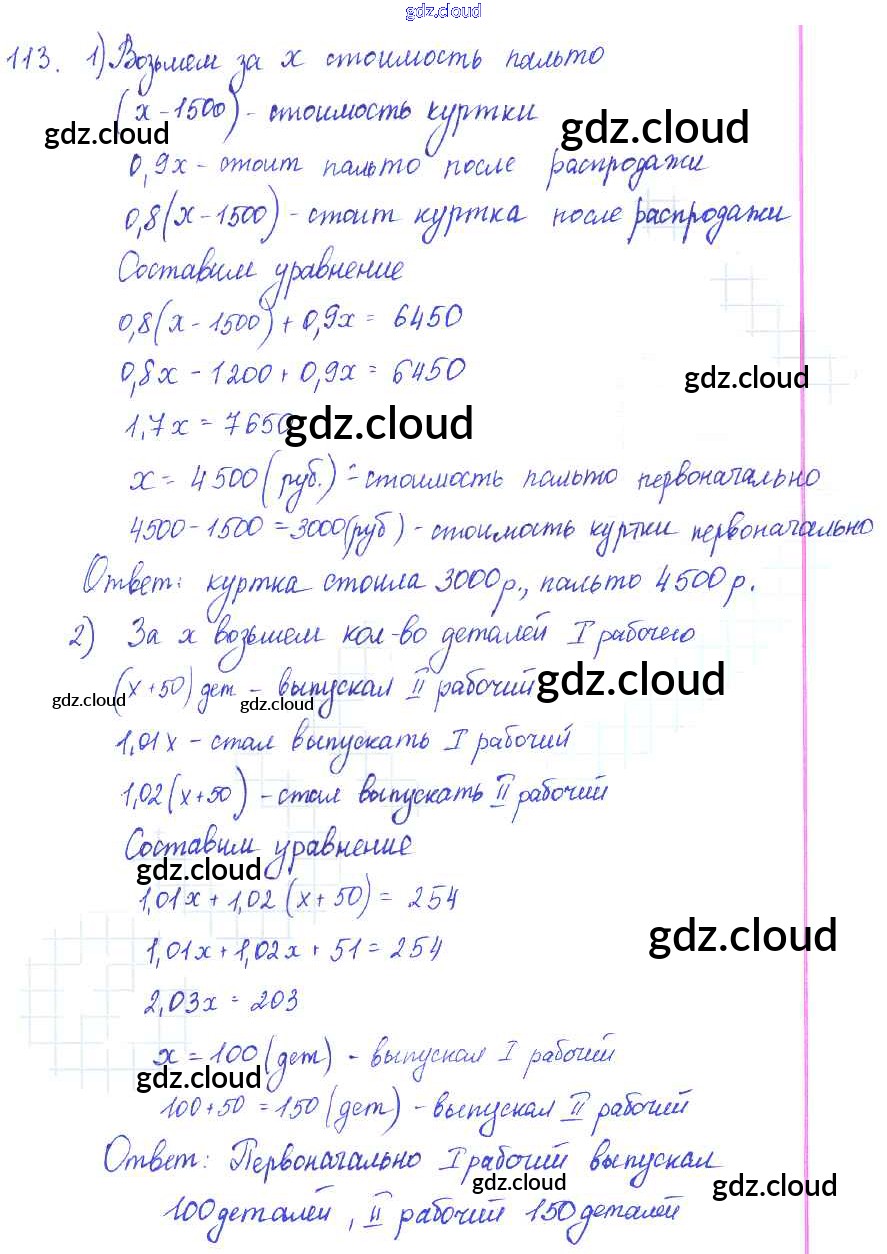 gdz.cloud
113. 1) Возьмем за x стоимость пальто
(x-1500) - стоимость куртки
gdz.cloud gdz.cloud
0,9x - стоит пальто после распродажи
0,8(x-1500) - стоит куртка после распродажи
Составим уравнение
0,8(x-1500)+0,9x = 6450
0,8x - 1200+0,9x = 6450
gdz.cloud
1,7x = 7650
gdz.cloud
x = 4500(руб.) - стоимость пальто первоначально
4500-1500 = 3000(руб) - стоимость куртки первоначально
Ответ: куртка стоила 3000р., пальто 4500р.
2) За x возьмем кол-во деталей I рабочего
(x+50) дет - выпускал II рабочий
gdz.cloud gdz.cloud gdz.cloud
1,01x - стал выпускать I рабочий
1,02(x+50) - стал выпускать II рабочий
Составим уравнение
gdz.cloud
1,01x+1,02(x+50) = 254
gdz.cloud
1,01x+1,02x+51 = 254
2,03x = 203
x = 100(дет) - выпускал I рабочий
gdz.cloud
100+50 = 150(дет) - выпускал II рабочий
Ответ: Первоначально I рабочий выпускал
gdz.cloud gdz.cloud
100 деталей, II рабочий 150 деталей